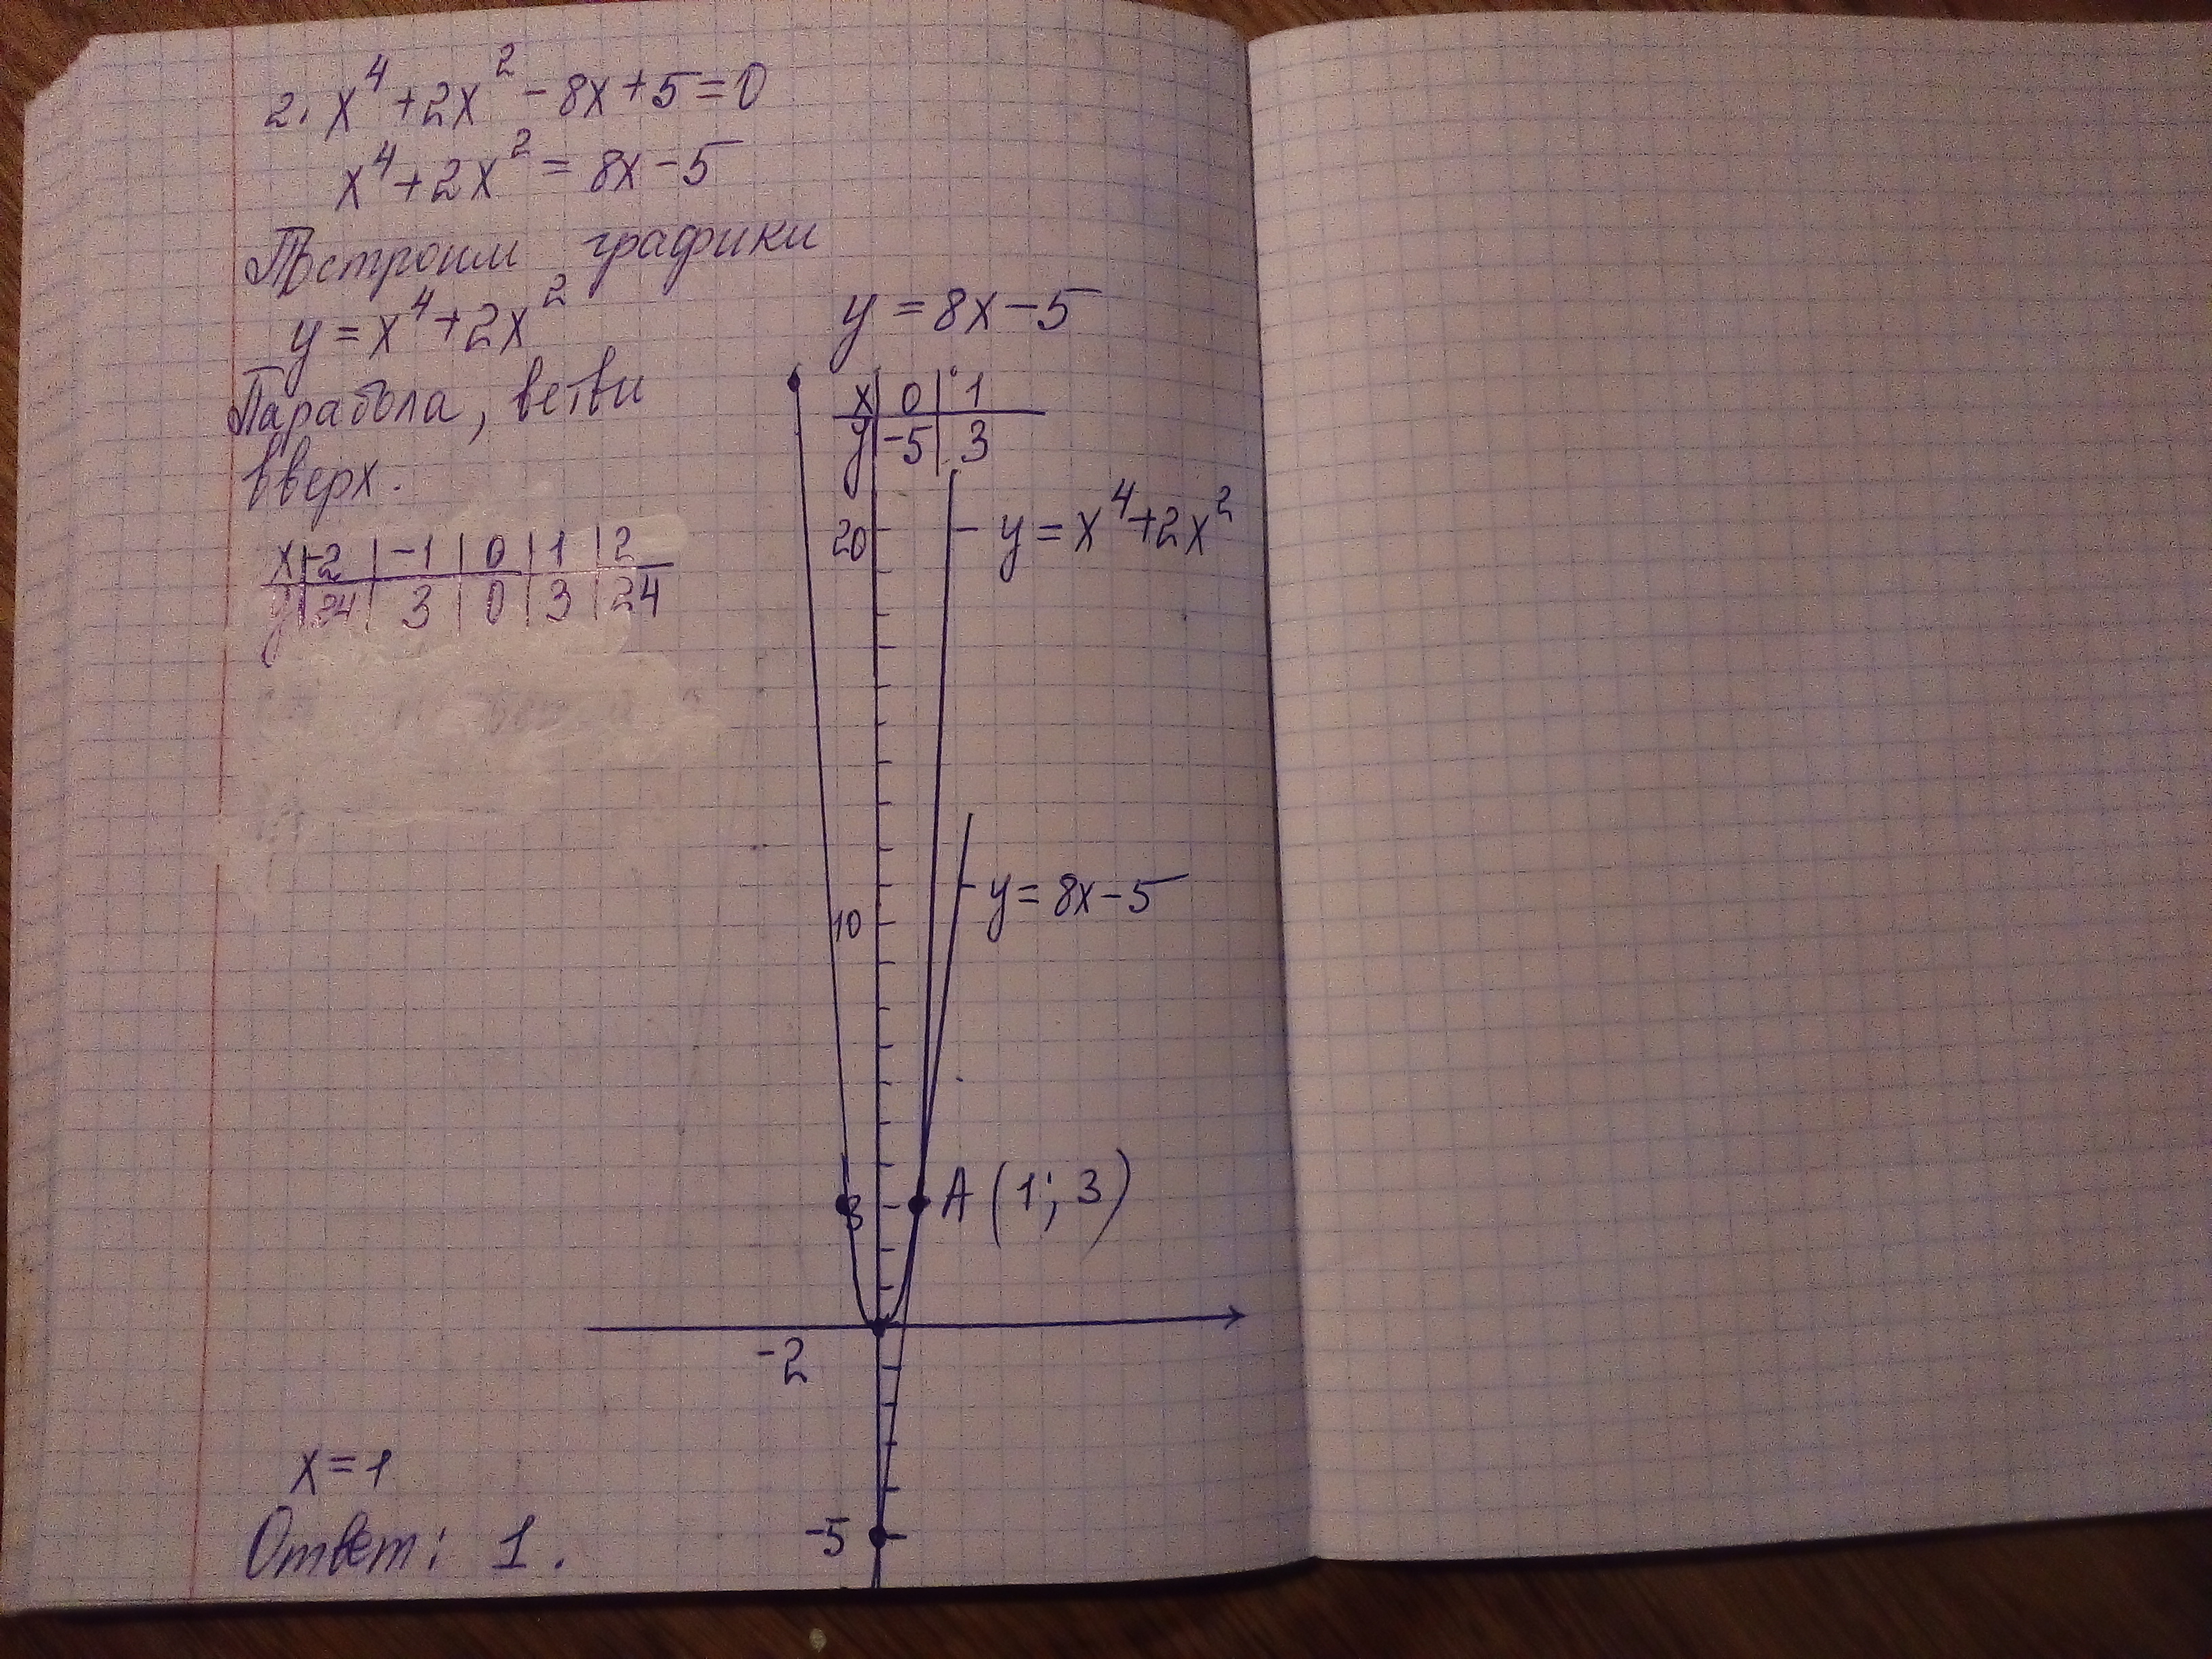 2. x⁴+2x²-8x+5=0
x⁴+2x²=8x-5
Построим графики
y=x⁴+2x²
y=8x-5
Парабола, ветви
вверх.
x|-2|-1|0|1|2
y|24|3|0|3|24
x|0|1
y|-5|3
20
y=x⁴+2x²
10
y=8x-5
3
A(1;3)
-2
-5
x=1
Ответ: 1.